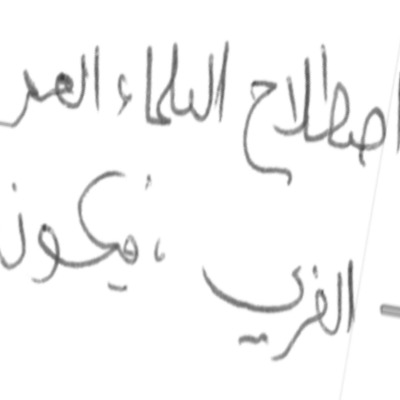 اصطلاح العلماء العر
- الغربي ، فيكون